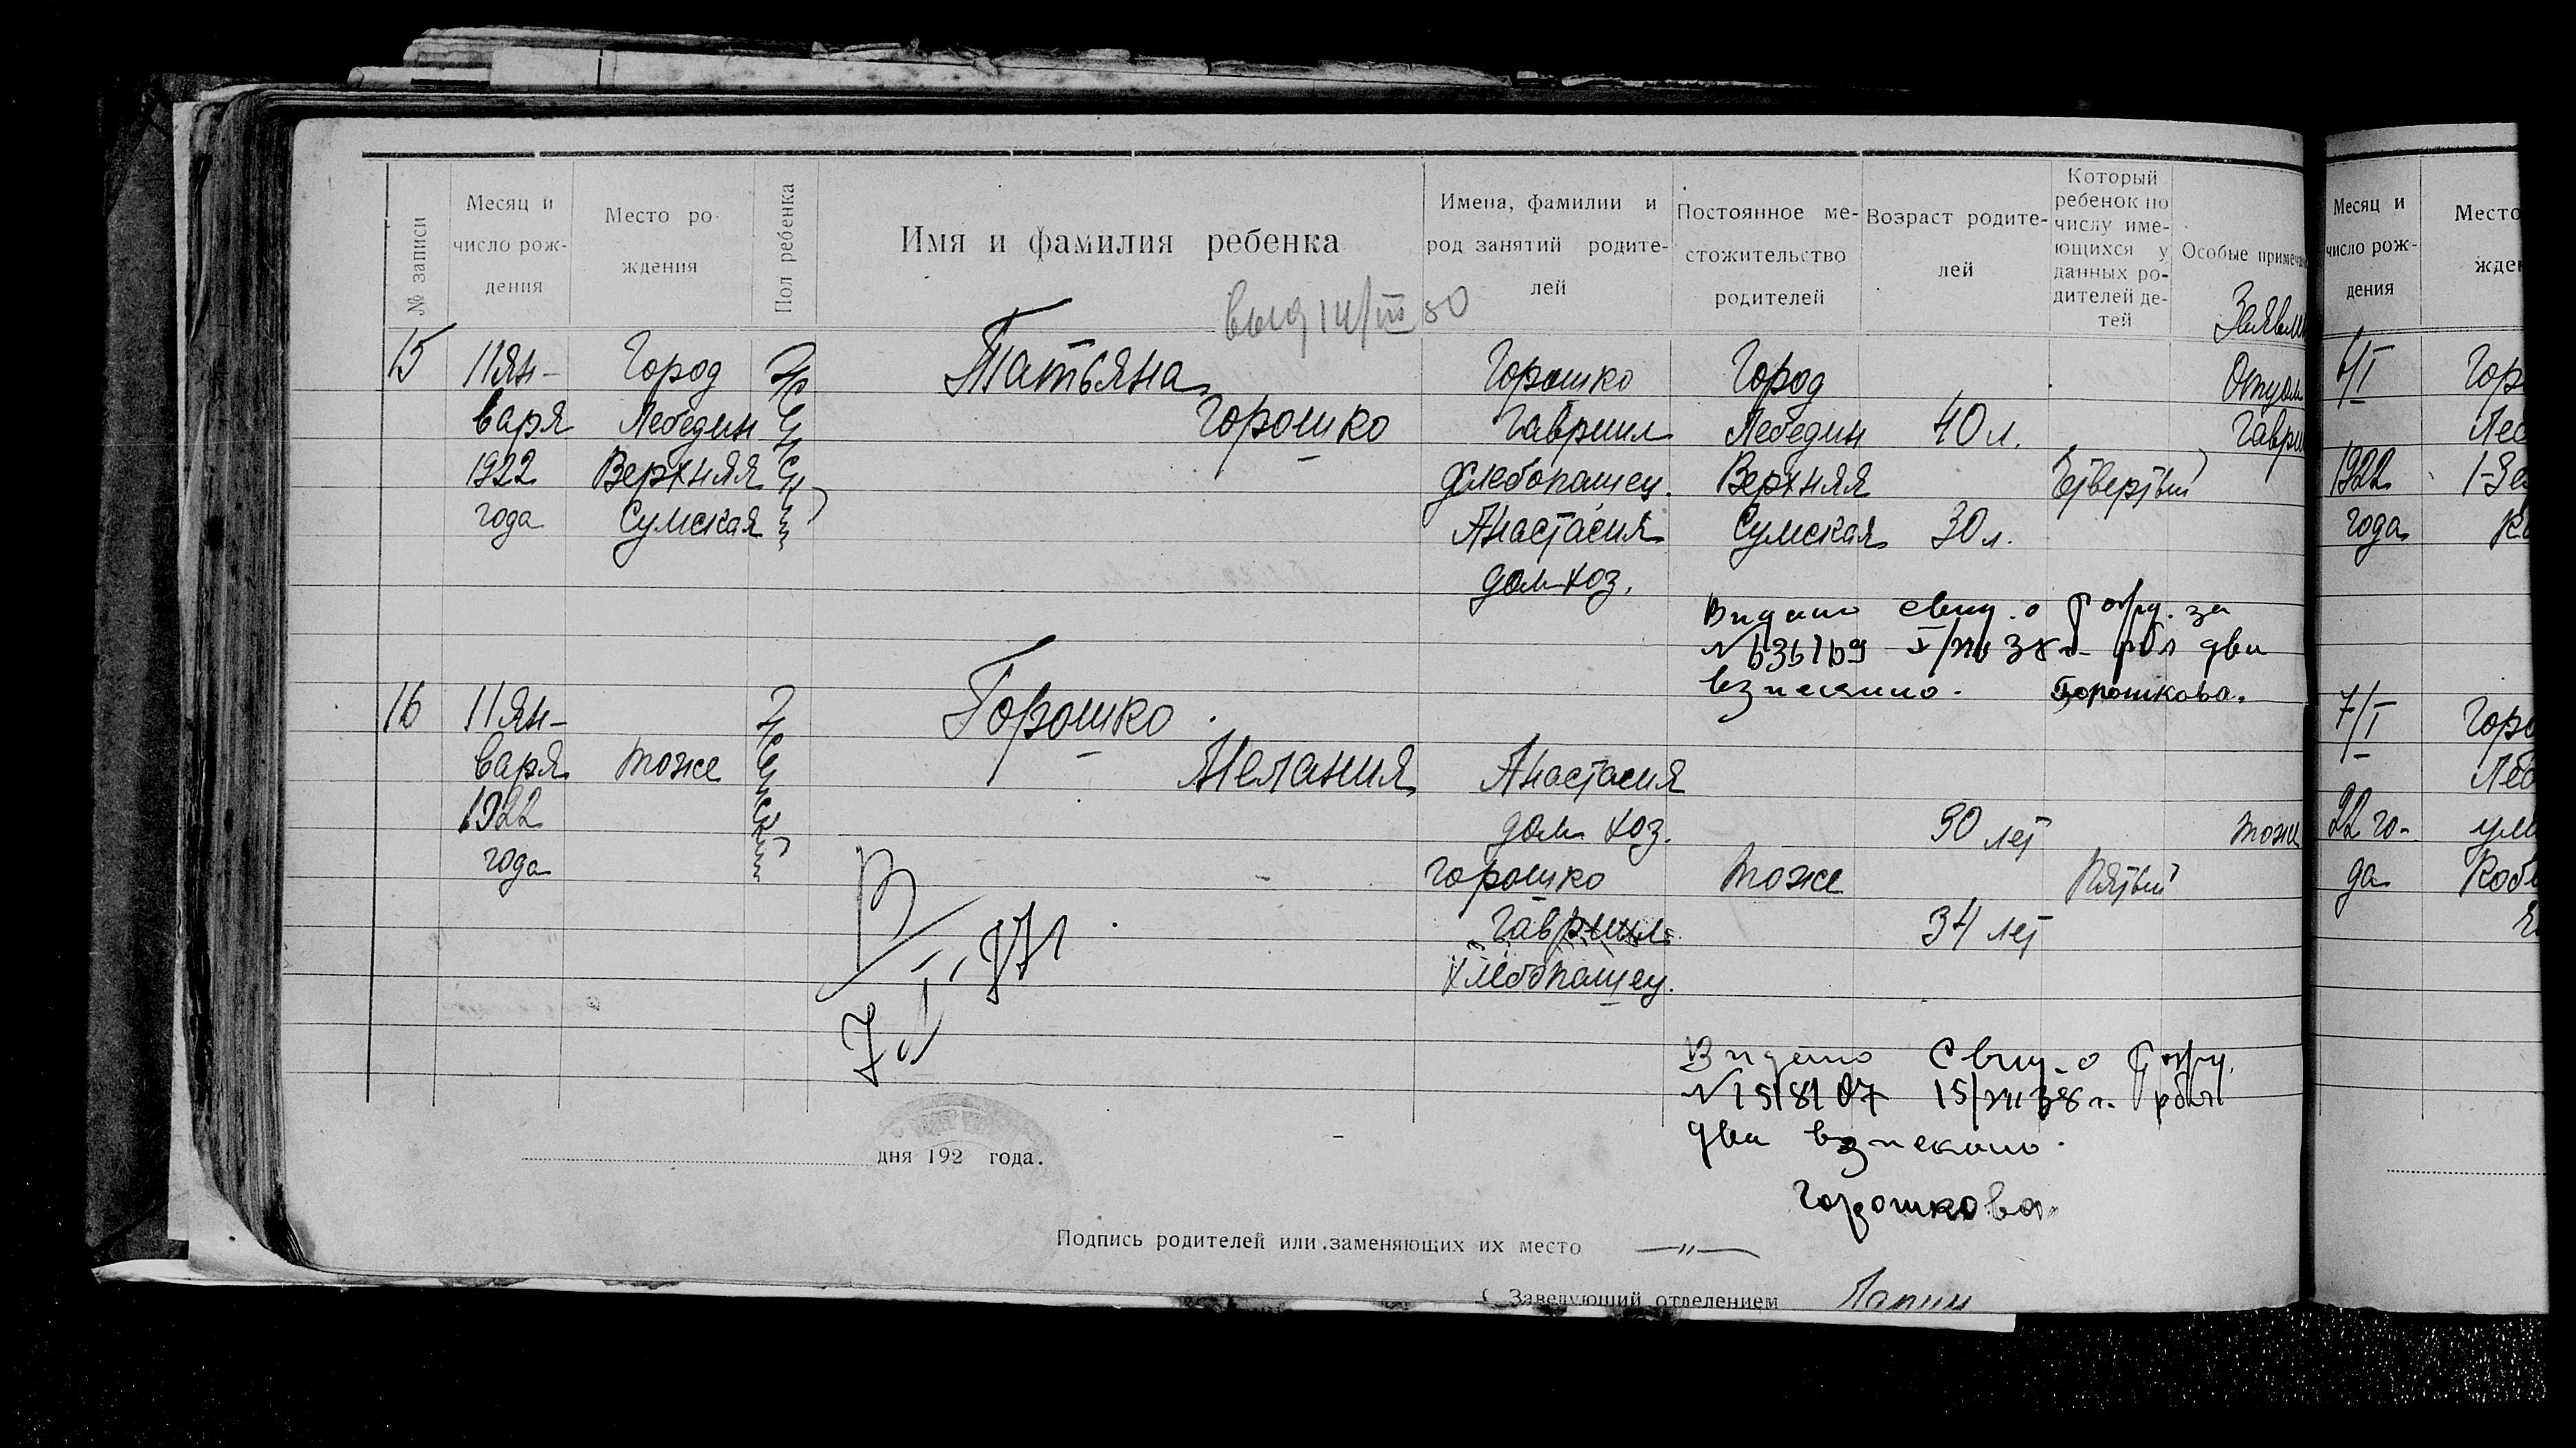 № записи
Месяц и
число рож-
дения
Место ро-
ждения
Пол ребенка
Имя и фамилия ребенка
Имена, фамилии и
род занятий родите-
лей
Постоянное ме-
стожительство
родителей
Возраст родите-
лей
Который
ребенок по
числу име-
ющихся у
данных ро-
дителей де-
тей
Особые примеча
15
11 Ян-
варя
1922
года
Город
Лебедин
Верхняя
Сумская
Женский
Татьяна
Горошко
Горошко
Гавриил
хлебопашец.
Анастасия
дом хоз.
Город
Лебедин
Верхняя
Сумская
40 л.
30 л.
Четвертый
Отцом
Гаври
за
два
Горошкова.
16
11 Ян-
варя
1922
года
тоже
Женский
Горошко
Мелания
Анастасия
дом хоз.
Горошко
Гавриил
хлебопашец.
тоже
30 лет
34 лет
Пятый
тоже
15/VII 38 г.
два
Горошкова
дня 192 года.
Подпись родителей или заменяющих их место
—"—
Заведующий отделением
Месяц и
число рож-
дения
Место
жден
6/I
1922
года
Гор
Леб
7/I
22 го-
да
Горо
Леб